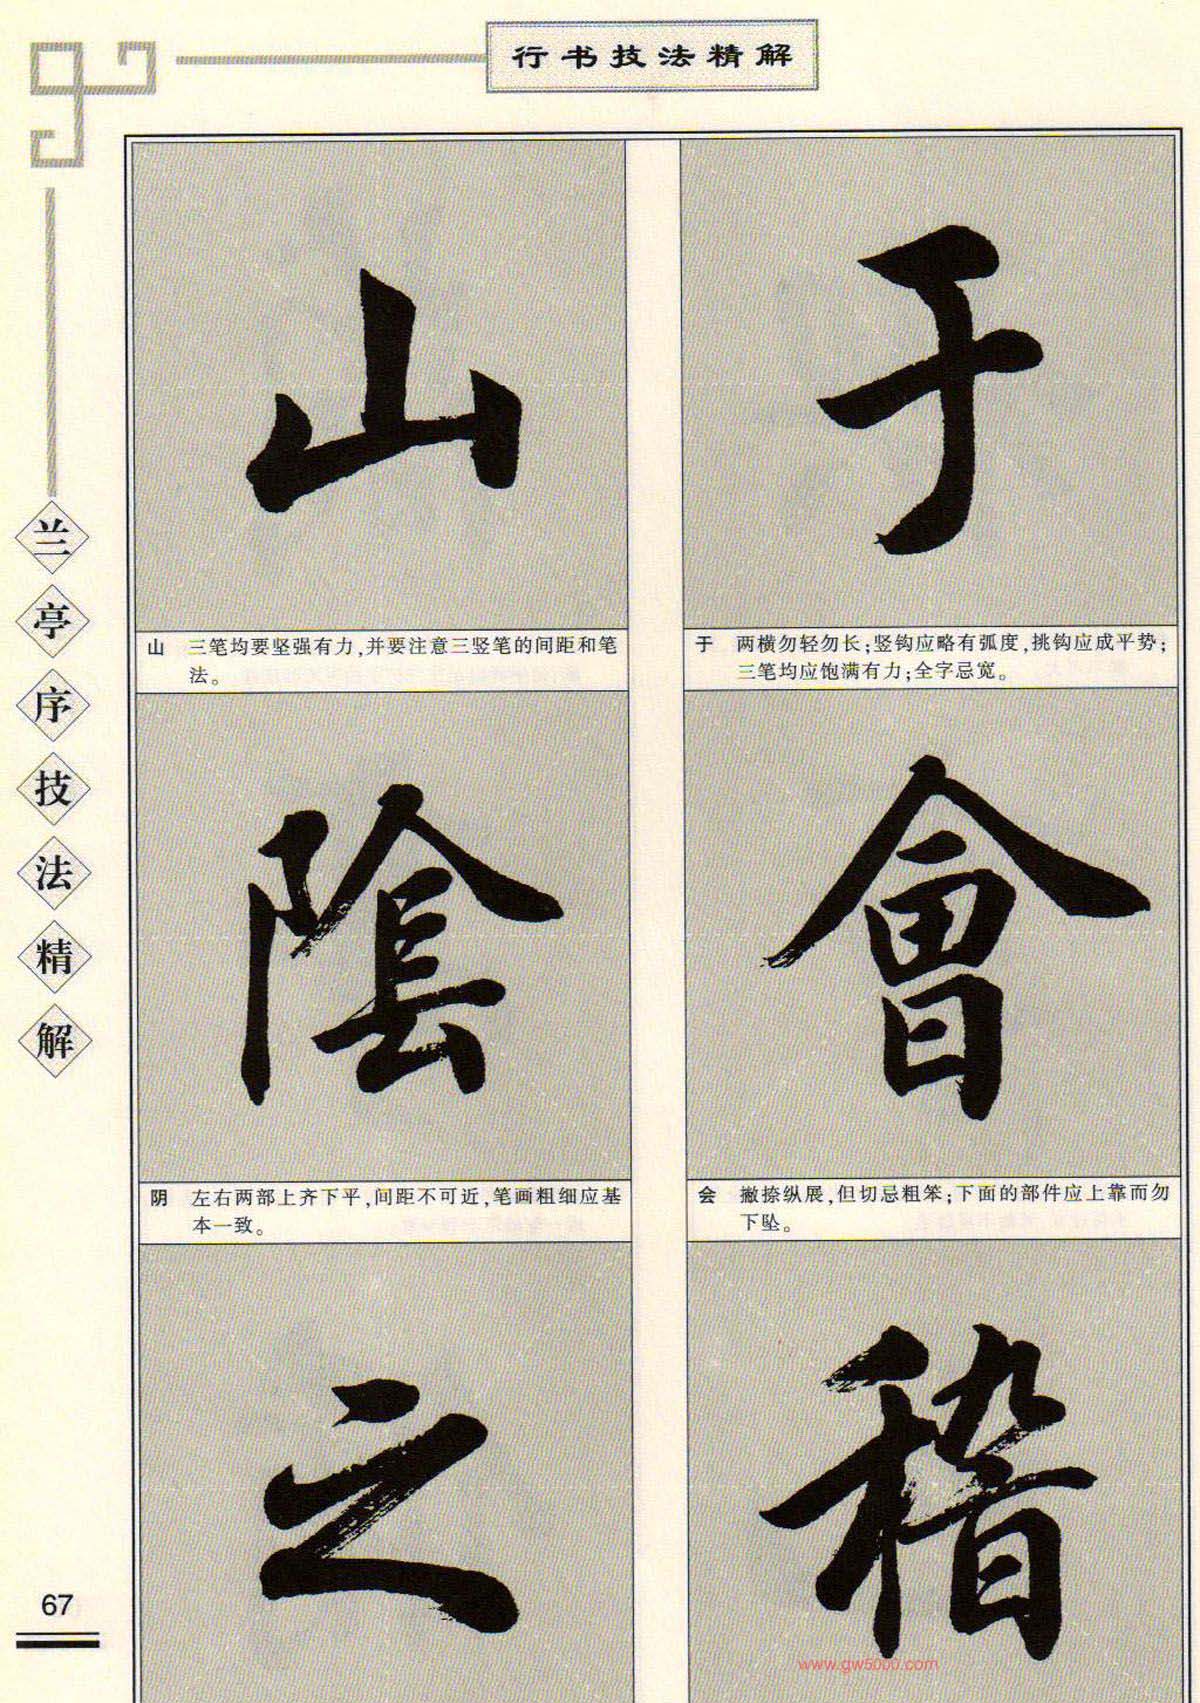 行书技法精解
兰亭序技法精解
于
于 两横勿轻勿长;竖钩应略有弧度,挑钩应成平势;
三笔均应饱满有力;全字忌宽。
會
会 撇捺纵展,但切忌粗笨;下面的部件应上靠而勿
下坠。
稽
山
山 三笔均要坚强有力,并要注意三竖笔的间距和笔
法。
陰
阴 左右两部上齐下平,间距不可近,笔画粗细应基
本一致。
之
67
www.gw5000.com